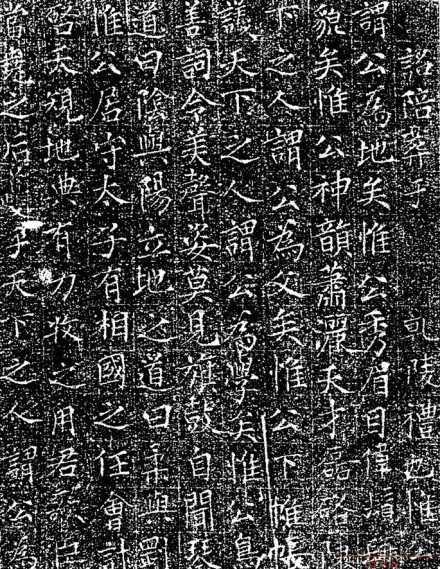 詔陪葬于乾陵禮也惟
謂公為地矣惟公秀眉目偉鬚
貌矣惟公神韻蕭灑天才磊落
下之人謂公為文矣惟公下帷帳
議天下之人謂公為學矣惟公鳥
善詞令美聲姿莫見旗鼓自聞琴
道曰陰與陽立地之道曰柔與剛
惟公居守太子有相國之任會計
昭天視地典有力牧之用君歌臣
首夔之后子天下之人謂公為